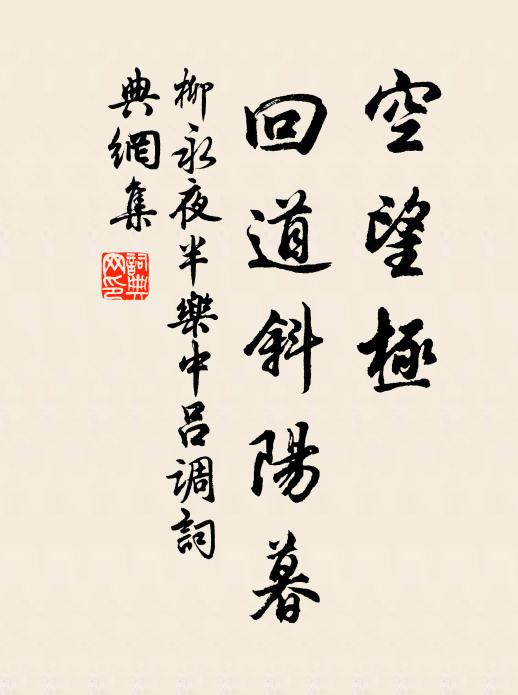 空望極
回道斜陽暮
柳永夜半樂中呂調詞
典網集
詞典
网印